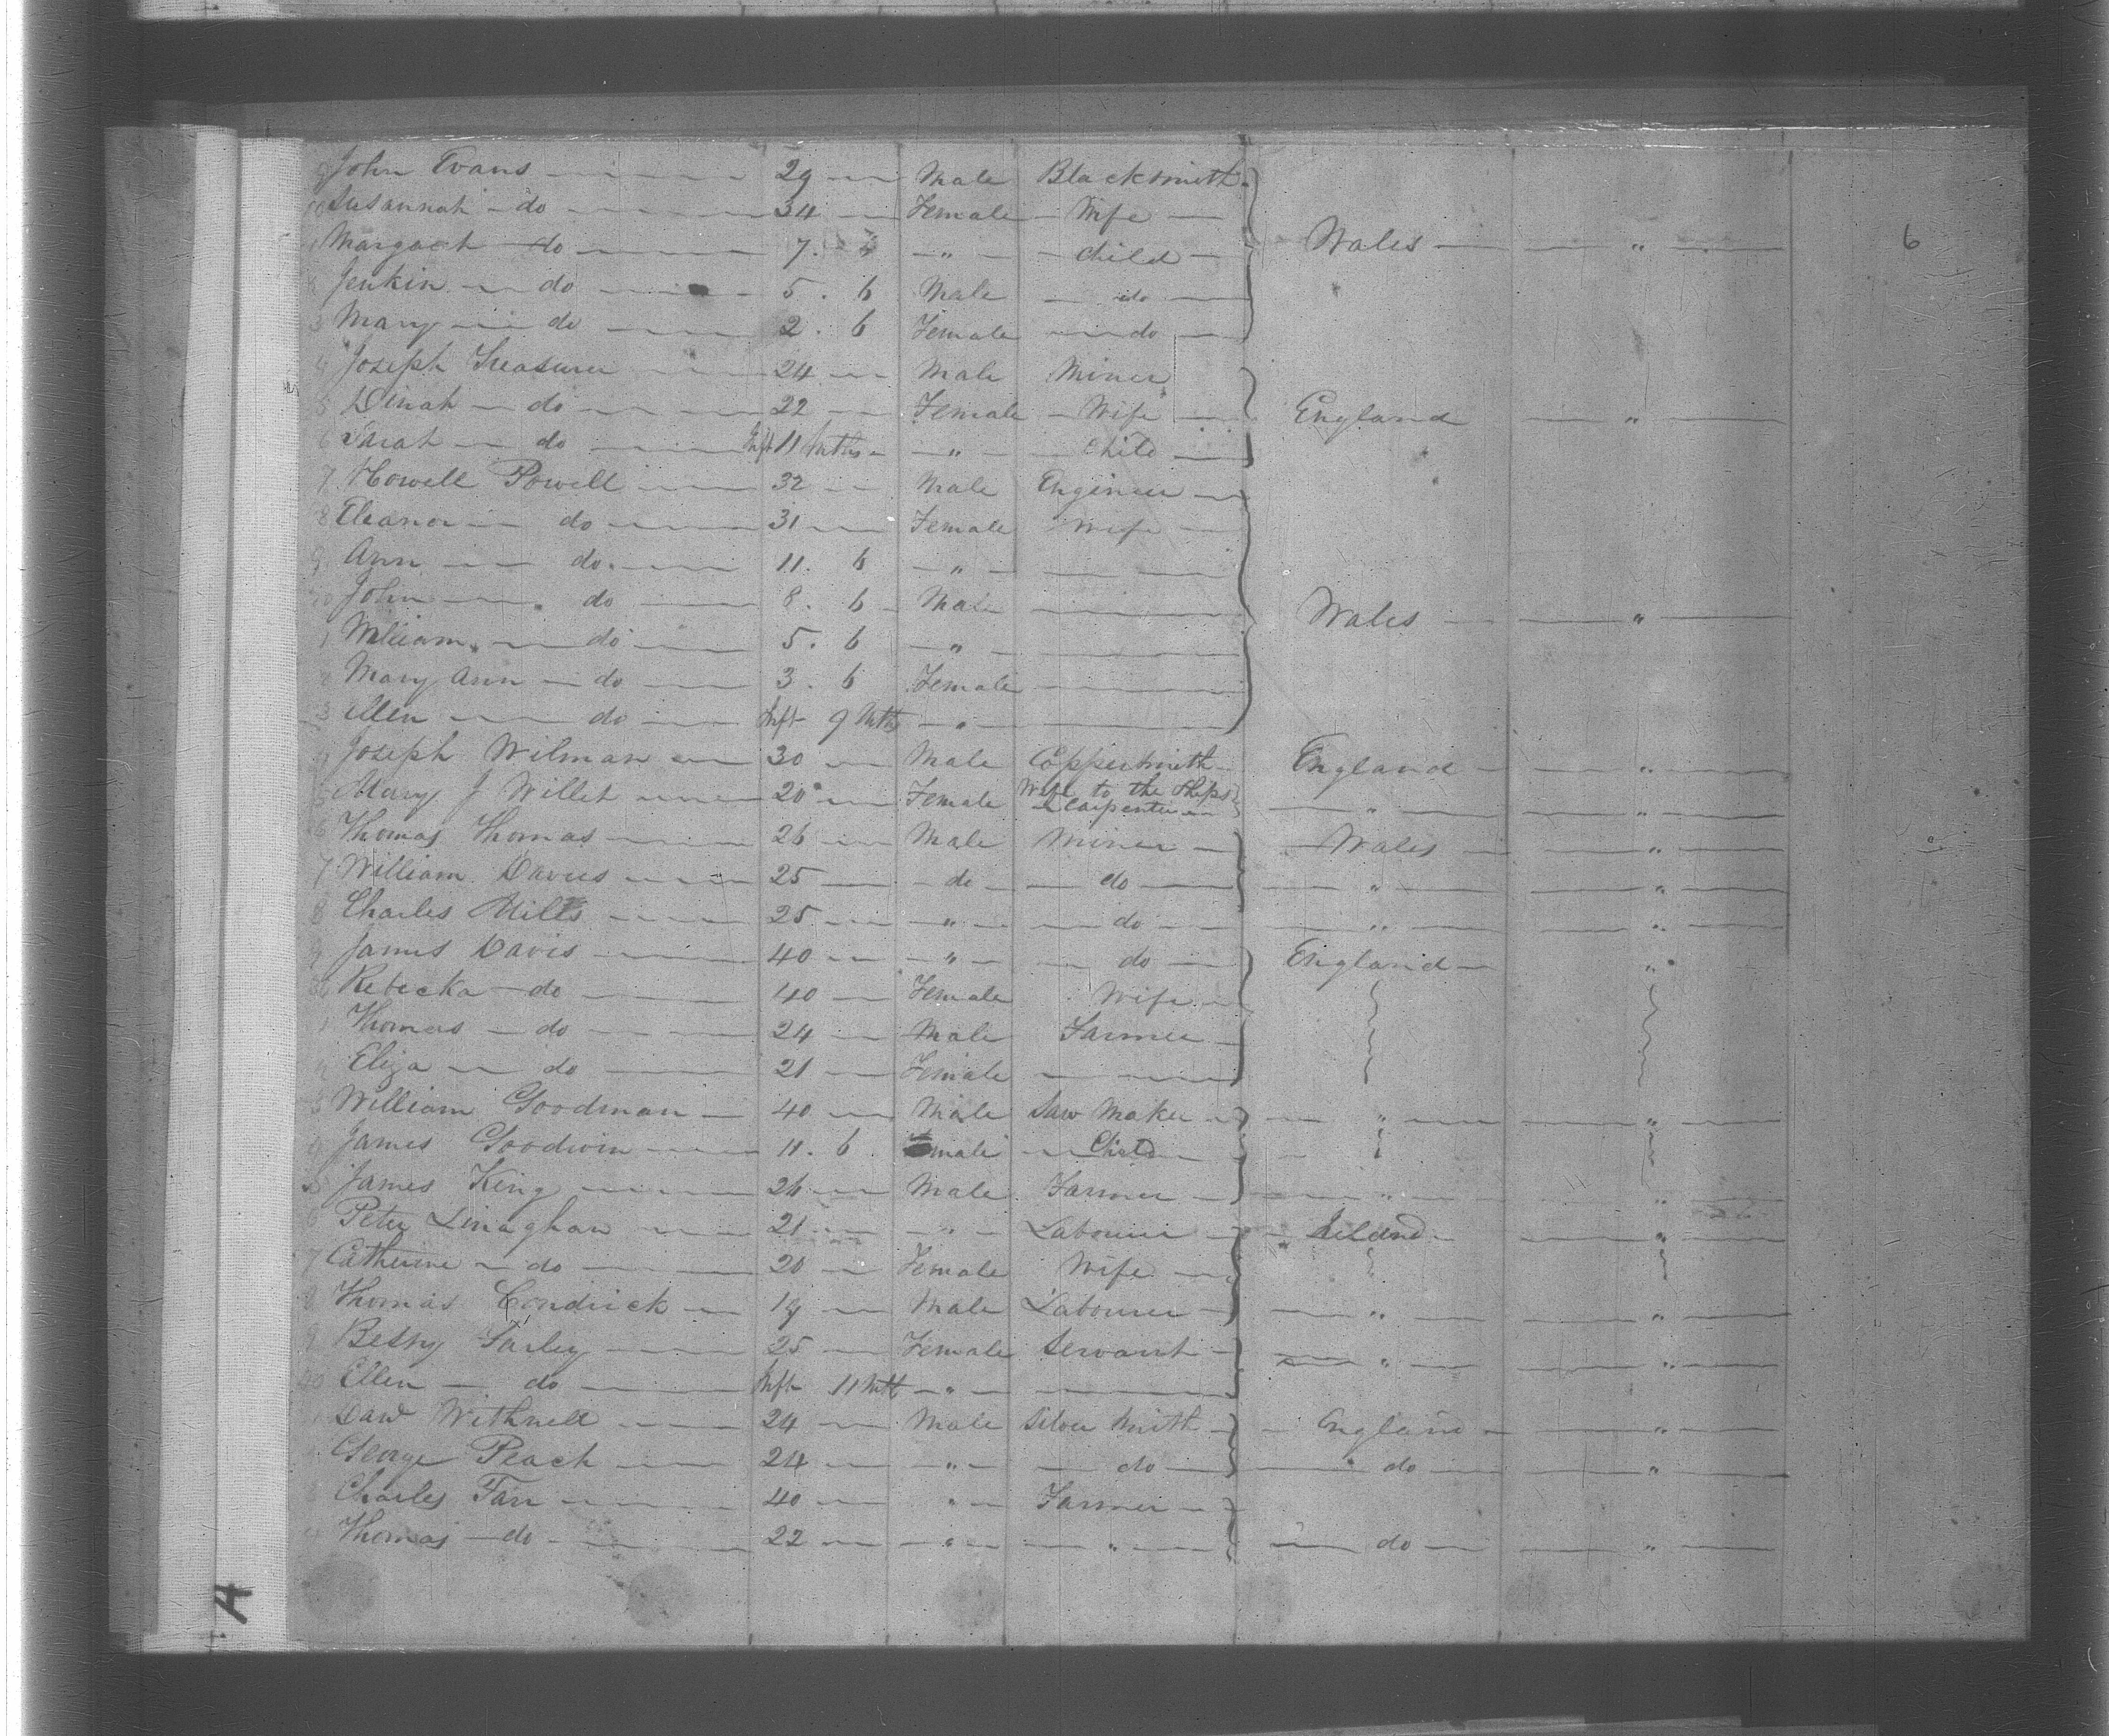 9 John Evans 29 Male Blacksmith
10 Susannah do 34 Female Wife
1 Margaret do 7. " " Child Wales " 6
2 Jenkin do 5. 6 Male do
3 Mary do 2. 6 Female do
4 Joseph Treasurer 24 Male Miner
5 Dinah do 22 Female Wife England "
6 Sarah do Inft 11 Mths " Child
7 Howell Powell 32 Male Engineer
8 Eleanor do 31 Female Wife
9 Ann do. 11. 6 "
20 John do 8. 6 Male Wales "
1 William do 5. 6 "
2 Mary Ann do 3. 6 Female
3 Ellen do Inft 9 Mths "
4 Joseph Wilman 30 Male Coppersmith England "
5 Mary J Willet 20 Female Wife to the Ships Carpenter " "
6 Thomas Thomas 26 Male Miner Wales "
7 William Davies 25 do do " "
8 Charles Mills 25 " do " "
9 James Davis 40 " do England "
30 Rebecka do 40 Female Wife
1 Thomas do 24 Male Farmer
2 Eliza do 21 Female
3 William Goodman 40 Male Saw Maker " "
4 James Goodwin 11. 6 male Child
5 James King 26 Male Farmer " "
6 Peter Linaghan 21 " Labourer Ireland "
7 Catherine do 20 Female Wife
8 Thomas Condrick 19 Male Labourer " "
9 Betsy Farley 25 Female Servant " "
40 Ellen do Inft 11 Mth "
Withnell 24 Male Silver Smith England "
George Peach 24 " do do "
Charles Farr 40 " Farmer
Thomas do 22 " " do "
A